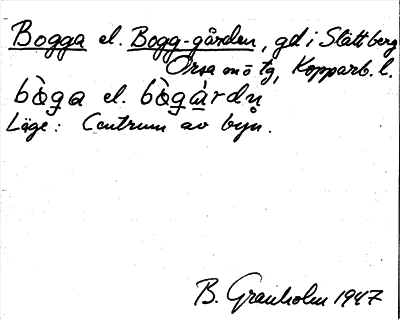 Bogga el. Bogg-gården, gd i Slättberg
Orsa sn ö tg, Kopparb. l.
bò̱ga el. bò̱gàrdn̥
Läge: Centrum av byn.
B. Granholm 1947